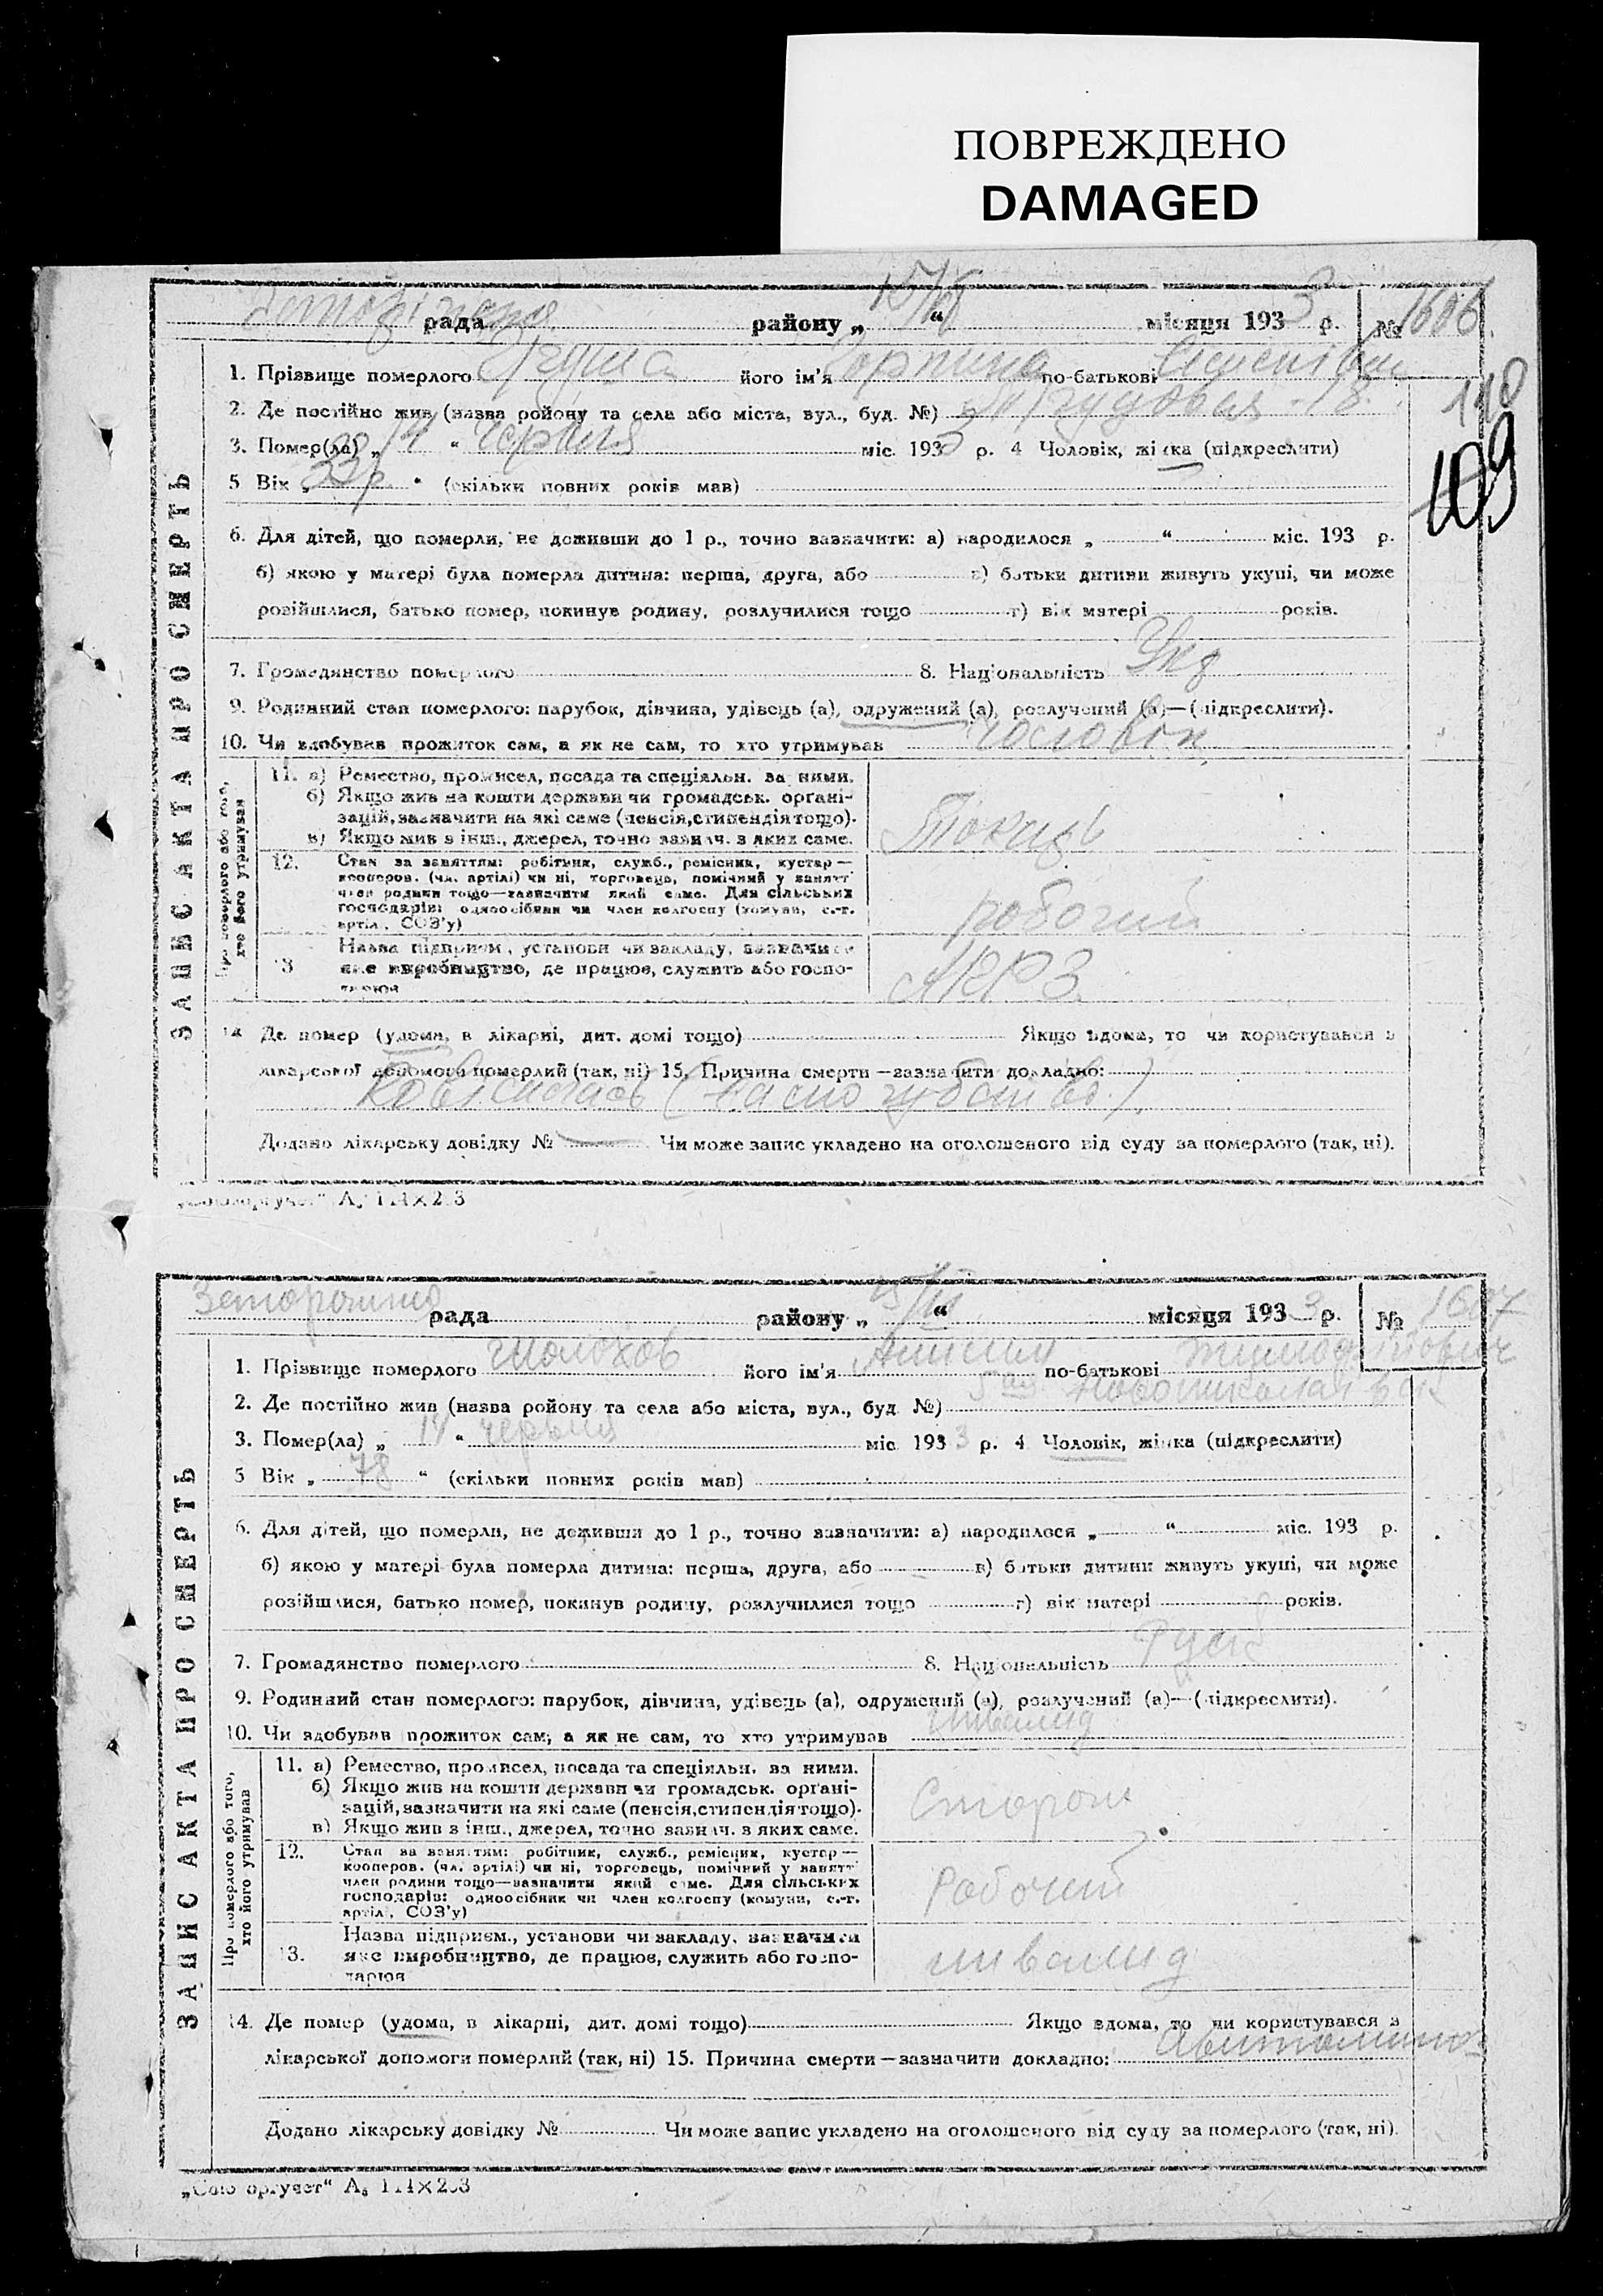 ПОВРЕЖДЕНО
DAMAGED
рада району „ 15/VI “ місяця 1933 р. № 1606
110
109
ЗАПИС АКТА ПРО СМЕРТЬ
1. Прізвище померлого його ім'я Горпина по-батькові
2. Де постійно жив (назва ройону та села або міста, вул., буд. №)
3. Помер(ла) „ “ червня міс. 1933 р. 4 Чоловік, жінка (підкреслити)
5 Вік „ “ (скільки повних років мав)
6. Для дітей, що померли, не доживши до 1 р., точно зазначити: а) народилося „ “ міс. 193 р.
б) якою у матері була померла дитина: перша, друга, або в) батьки дитини живуть укупі, чи може
розійшлися, батько помер, покинув родину, розлучилися тощо г) вік матері років.
7. Громадянство померлого 8. Національність Укр
9. Родинний стан померлого: парубок, дівчина, удівець (а), одружений (а), розлучений (а)—(підкреслити).
10. Чи здобував прожиток сам, а як не сам, то хто утримував чоловік
Про померлого або того, хто його утримував
11. а) Ремество, промисел, посада та спеціяльн. за ними.
б) Якщо жив на кошти держави чи громадськ. органі-
зацій, зазначити на які саме (пенсія, стипендія тощо).
в) Якщо жив з інш., джерел, точно зазнач. з яких саме.
Токарь
12. Стан за заняттям: робітник, служб., ремісник, кустар—
кооперов. (чл. артілі) чи ні, торговець, помічний у занятт
член родини тощо—зазначити який саме. Для сільських
господарів: одноосібник чи член колгоспу (комуни, с.-г.
артілі, СОЗ'у)
робочий
13 Назва підприєм., установи чи закладу, зазначити
яке виробництво, де працює, служить або госпо-
дарює
14 Де помер (удома, в лікарні, дит. домі тощо) Якщо вдома, то чи користувався з
лікарської допомоги померлий (так, ні) 15. Причина смерти—зазначити докладно:
Додано лікарську довідку № Чи може запис укладено на оголошеного від суду за померлого (так, ні).
„Союзоргучет“ А₅
Запорожжя рада району „ 15/VI “ місяця 1933 р. № 1607
ЗАПИС АКТА ПРО СМЕРТЬ
1. Прізвище померлого Шолохов його ім'я по-батькові
2. Де постійно жив (назва ройону та села або міста, вул., буд. №)
3. Помер(ла) „ 14 “ червня міс. 1933 р. 4 Чоловік, жінка (підкреслити)
5 Вік „ 78 “ (скільки повних років мав)
6. Для дітей, що померли, не доживши до 1 р., точно зазначити: а) народилося „ “ міс. 193 р.
б) якою у матері була померла дитина: перша, друга, або в) батьки дитини живуть укупі, чи може
розійшлися, батько помер, покинув родину, розлучилися тощо г) вік матері років.
7. Громадянство померлого 8. Національність
9. Родинний стан померлого: парубок, дівчина, удівець (а), одружений (а), розлучений (а)—(підкреслити).
10. Чи здобував прожиток сам, а як не сам, то хто утримував инвалид
Про померлого або того, хто його утримував
11. а) Ремество, промисел, посада та спеціяльн. за ними.
б) Якщо жив на кошти держави чи громадськ. органі-
зацій, зазначити на які саме (пенсія, стипендія тощо).
в) Якщо жив з інш., джерел, точно зазнач. з яких саме.
Сторож
12. Стан за заняттям: робітник, служб., ремісник, кустар—
кооперов. (чл. артілі) чи ні, торговець, помічний у занятт
член родини тощо—зазначити який саме. Для сільських
господарів: одноосібник чи член колгоспу (комуни, с.-г.
артілі, СОЗ'у)
Робочий
13. Назва підприєм., установи чи закладу, зазначити
яке виробництво, де працює, служить або госпо-
дарює
инвалид
14. Де помер (удома, в лікарні, дит. домі тощо) Якщо вдома, то чи користувався з
лікарської допомоги померлий (так, ні) 15. Причина смерти—зазначити докладно: Авитаминоз
Додано лікарську довідку № Чи може запис укладено на оголошеного від суду за померлого (так, ні).
„Союзоргучет“ А₅